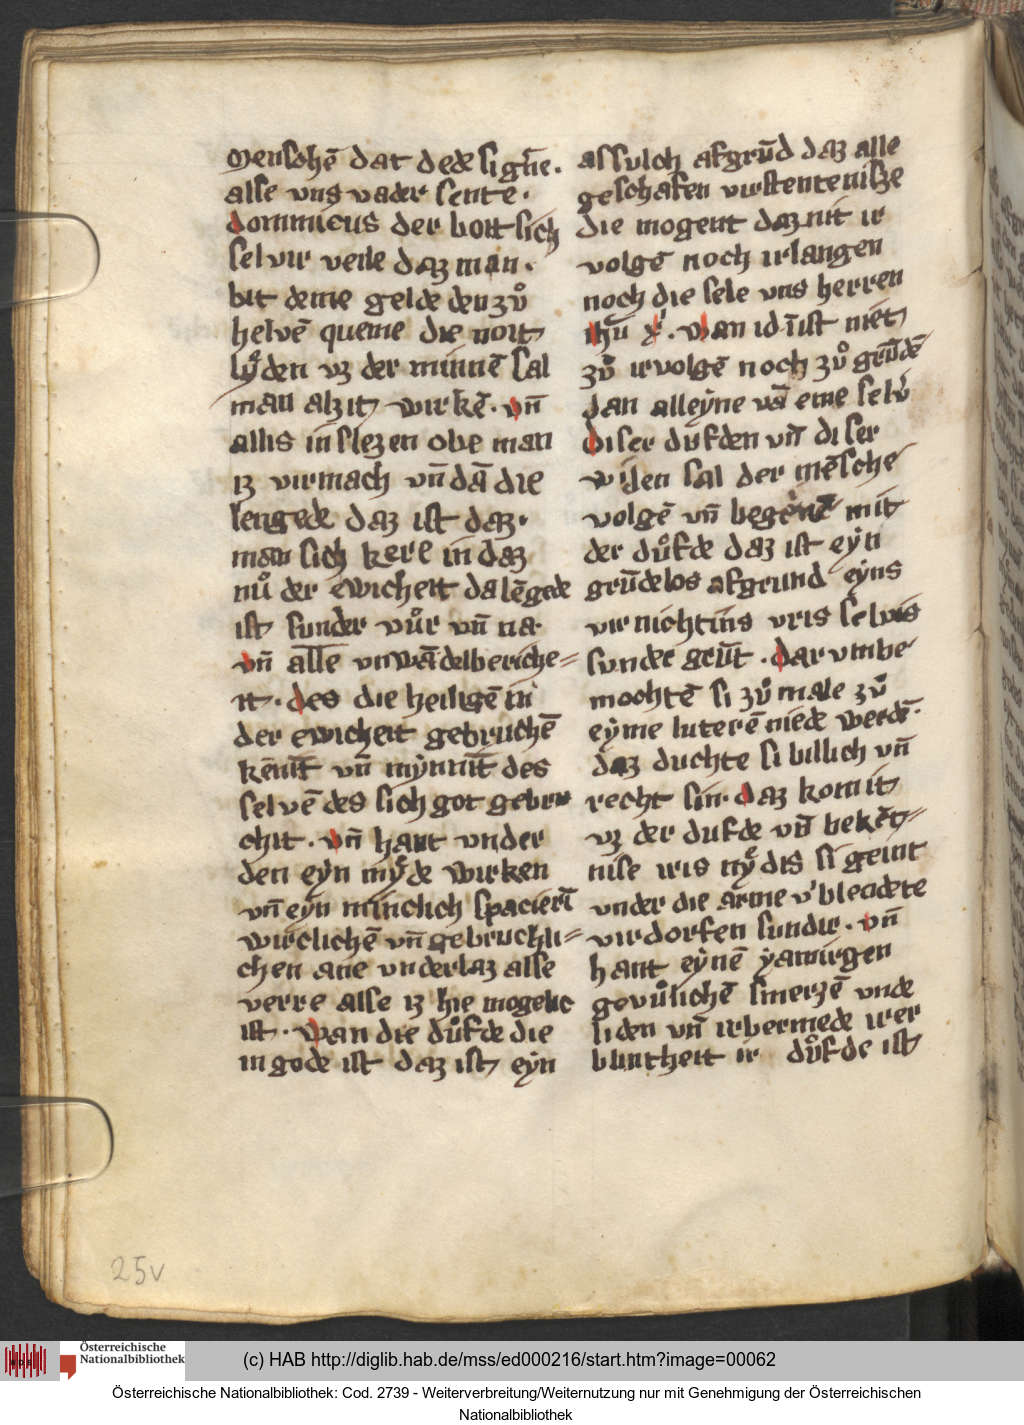 Menschē dat dede si gh̄e.
alse vns vader sente.
dominicus der bott sich
selvir veile daz man.
bit deme gelde den zů
helvē queme die noit
lyͦden vz der minnē sal
man alzit wirkē. vn̄
allis in slezen obe man
iz virmach vn̄ dā die
lengede daz ist daz.
man sich kere in daz
nuͦ der ewicheit da lēgede
ist sunder vuͦr vn̄ na.
vn̄ alle vnwādelberiche=
it. des die heiligē in
der ewicheit gebruchē
kēnit vn̄ mẏnnit des
selvē des sich got gebru
chit. vn̄ hant vnder
den eẏn myͦde wirken
vn̄ eẏn minclich spacierī
wirclichē vn̄ gebruchli=
chen ane vnderlaz alse
verre alse iz hie mogelic
ist. wan die duͦfde die
in gode ist daz ist eẏn
assulch afgrūd daz alle
geschafen virstentenisze
die mogent daz nit ir
volgē noch irlangen
noch die sele vns herren
ihū x'. wan id īist niet
zuͦ irvolgē noch zuͦ grūdē
dan alleẏne vā eme selv'
diser dufden vn̄ diser
widen sal der mēsche
volgē vn̄ begẽnē mit
der duͦfde daz ist eẏn
grūdelos afgrund eẏns
vir nichtins vris selvis
sunder grūt. dar vmbe
mochtē si zuͦ male zuͦ
eẏme luterē niede werdē.
daz duchte si billich vn̄
recht sin. daz komit
vz der dufde vn̄ bekēt=
nise iris nyͦdis si geint
vnder die arme v'blendete
virdorfen sundir. vn̄
hant eẏnē ẏamirgen
gevuͦlichē smerzē vnde
liden vn̄ irbermede irer
blintheit ir duͦfde ist
25v
Österreichische
Nationalbibliothek
(c) HAB http://diglib.hab.de/mss/ed000216/start.htm?image=00062
Österreichische Nationalbibliothek: Cod. 2739 - Weiterverbreitung/Weiternutzung nur mit Genehmigung der Österreichischen
Nationalbibliothek